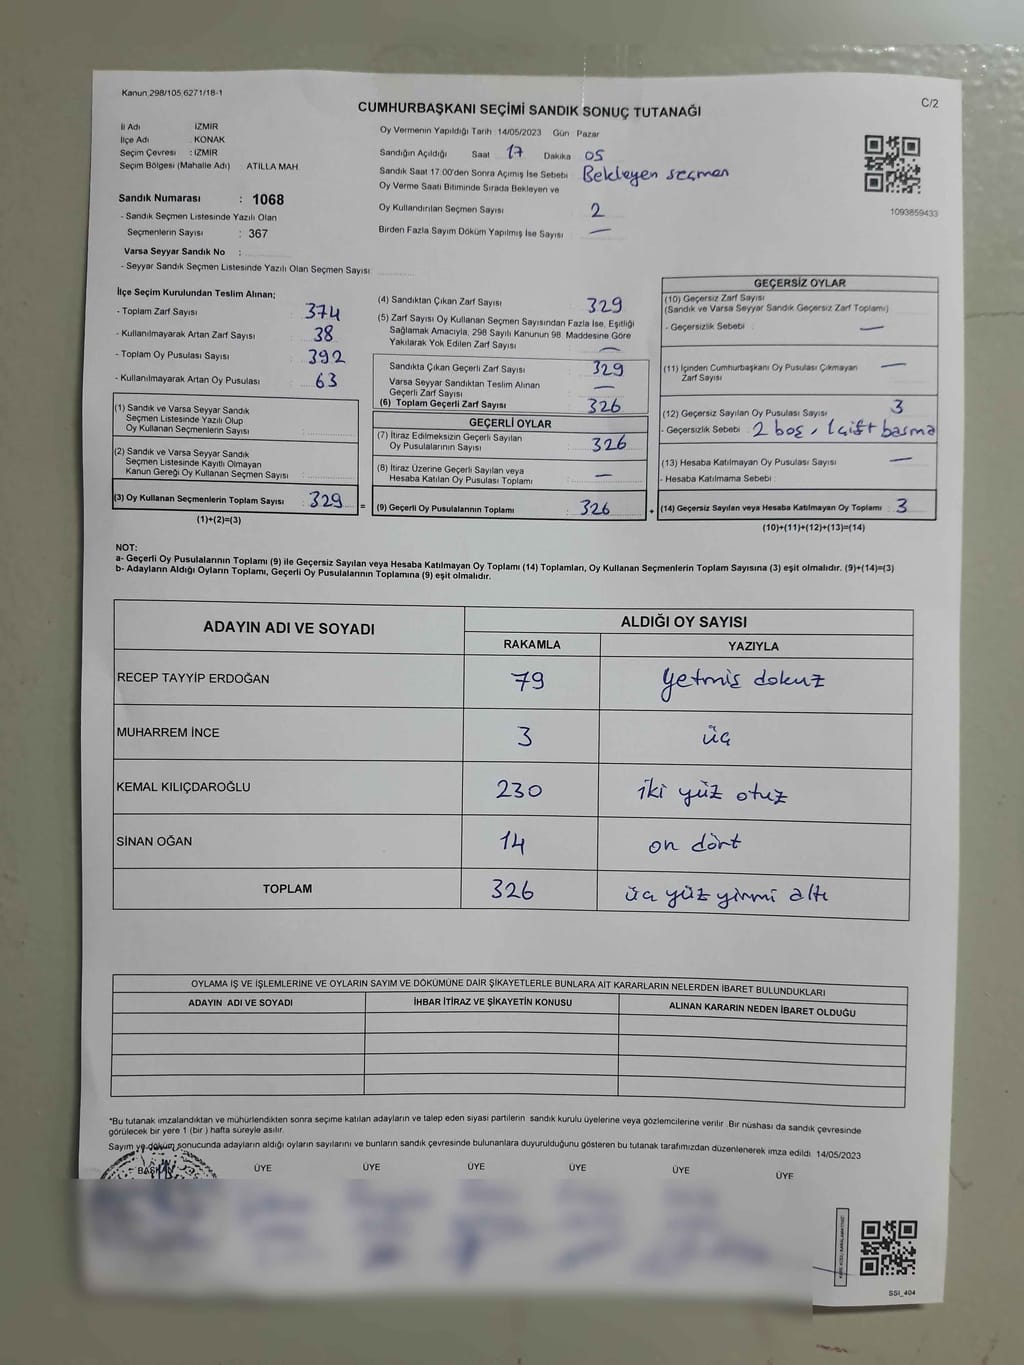 Kanun 298/105,6271/18-1
C/2
CUMHURBAŞKANI SEÇİMİ SANDIK SONUÇ TUTANAĞI
İl Adı İZMİR
İlçe Adı : KONAK
Seçim Çevresi : İZMİR
Seçim Bölgesi (Mahalle Adı) ATİLLA MAH
Sandık Numarası : 1068
- Sandık Seçmen Listesinde Yazılı Olan
Seçmenlerin Sayısı : 367
Varsa Seyyar Sandık No :
- Seyyar Sandık Seçmen Listesinde Yazılı Olan Seçmen Sayısı
Oy Vermenin Yapıldığı Tarih 14/05/2023 Gün Pazar
Sandığın Açıldığı Saat 17 Dakika 05
Sandık Saat 17.00'den Sonra Açımış İse Sebebi Bekleyen seçmen
Oy Verme Saati Bitiminde Sırada Bekleyen ve
Oy Kullandırılan Seçmen Sayısı 2
Birden Fazla Sayım Döküm Yapılmış İse Sayısı —
1093859433
İlçe Seçim Kurulundan Teslim Alınan;
- Toplam Zarf Sayısı : 374
- Kullanılmayarak Artan Zarf Sayısı : 38
- Toplam Oy Pusulası Sayısı : 392
- Kullanılmayarak Artan Oy Pusulası : 63
(1) Sandık ve Varsa Seyyar Sandık
Seçmen Listesinde Yazılı Olup
Oy Kullanan Seçmenlerin Sayısı :
(2) Sandık ve Varsa Seyyar Sandık
Seçmen Listesinde Kayıtlı Olmayan
Kanun Gereği Oy Kullanan Seçmen Sayısı :
(3) Oy Kullanan Seçmenlerin Toplam Sayısı : 329 =
(1)+(2)=(3)
(4) Sandıktan Çıkan Zarf Sayısı : 329
(5) Zarf Sayısı Oy Kullanan Seçmen Sayısından Fazla İse, Eşitliği
Sağlamak Amacıyla, 298 Sayılı Kanunun 98. Maddesine Göre
Yakılarak Yok Edilen Zarf Sayısı : —
Sandıkta Çıkan Geçerli Zarf Sayısı : 329
Varsa Seyyar Sandıktan Teslim Alınan
Geçerli Zarf Sayısı : —
(6) Toplam Geçerli Zarf Sayısı : 326
GEÇERLİ OYLAR
(7) İtiraz Edilmeksizin Geçerli Sayılan
Oy Pusulalarının Sayısı : 326
(8) İtiraz Üzerine Geçerli Sayılan veya
Hesaba Katılan Oy Pusulası Toplamı : —
(9) Geçerli Oy Pusulalarının Toplamı : 326 +
GEÇERSİZ OYLAR
(10) Geçersiz Zarf Sayısı
(Sandık ve Varsa Seyyar Sandık Geçersiz Zarf Toplamı)
- Geçersizlik Sebebi : —
(11) İçinden Cumhurbaşkanı Oy Pusulası Çıkmayan —
Zarf Sayısı
(12) Geçersiz Sayılan Oy Pusulası Sayısı : 3
- Geçersizlik Sebebi : 2 boş, 1 çift basma
(13) Hesaba Katılmayan Oy Pusulası Sayısı : —
- Hesaba Katılmama Sebebi :
(14) Geçersiz Sayılan veya Hesaba Katılmayan Oy Toplamı : 3
(10)+(11)+(12)+(13)=(14)
NOT:
a- Geçerli Oy Pusulalarının Toplamı (9) ile Geçersiz Sayılan veya Hesaba Katılmayan Oy Toplamı (14) Toplamları, Oy Kullanan Seçmenlerin Toplam Sayısına (3) eşit olmalıdır. (9)+(14)=(3)
b- Adayların Aldığı Oyların Toplamı, Geçerli Oy Pusulalarının Toplamına (9) eşit olmalıdır.
ADAYIN ADI VE SOYADI ALDIĞI OY SAYISI
RAKAMLA YAZIYLA
RECEP TAYYİP ERDOĞAN 79 yetmiş dokuz
MUHARREM İNCE 3 üç
KEMAL KILIÇDAROĞLU 230 iki yüz otuz
SİNAN OĞAN 14 on dört
TOPLAM 326 üç yüz yirmi altı
OYLAMA İŞ VE İŞLEMLERİNE VE OYLARIN SAYIM VE DÖKÜMÜNE DAİR ŞİKAYETLERLE BUNLARA AİT KARARLARIN NELERDEN İBARET BULUNDUKLARI
ADAYIN ADI VE SOYADI İHBAR İTİRAZ VE ŞİKAYETİN KONUSU ALINAN KARARIN NEDEN İBARET OLDUĞU
*Bu tutanak imzalandıktan ve mühürlendikten sonra seçime katılan adayların ve talep eden siyasi partilerin sandık kurulu üyelerine veya gözlemcilerine verilir. Bir nüshası da sandık çevresinde
görülecek bir yere 1 (bir) hafta süreyle asılır.
Sayım ve döküm sonucunda adayların aldığı oyların sayılarını ve bunların sandık çevresinde bulunanlara duyurulduğunu gösteren bu tutanak tarafımızdan düzenlenerek imza edildi. 14/05/2023
BAŞKAN ÜYE ÜYE ÜYE ÜYE ÜYE ÜYE
SSI_404